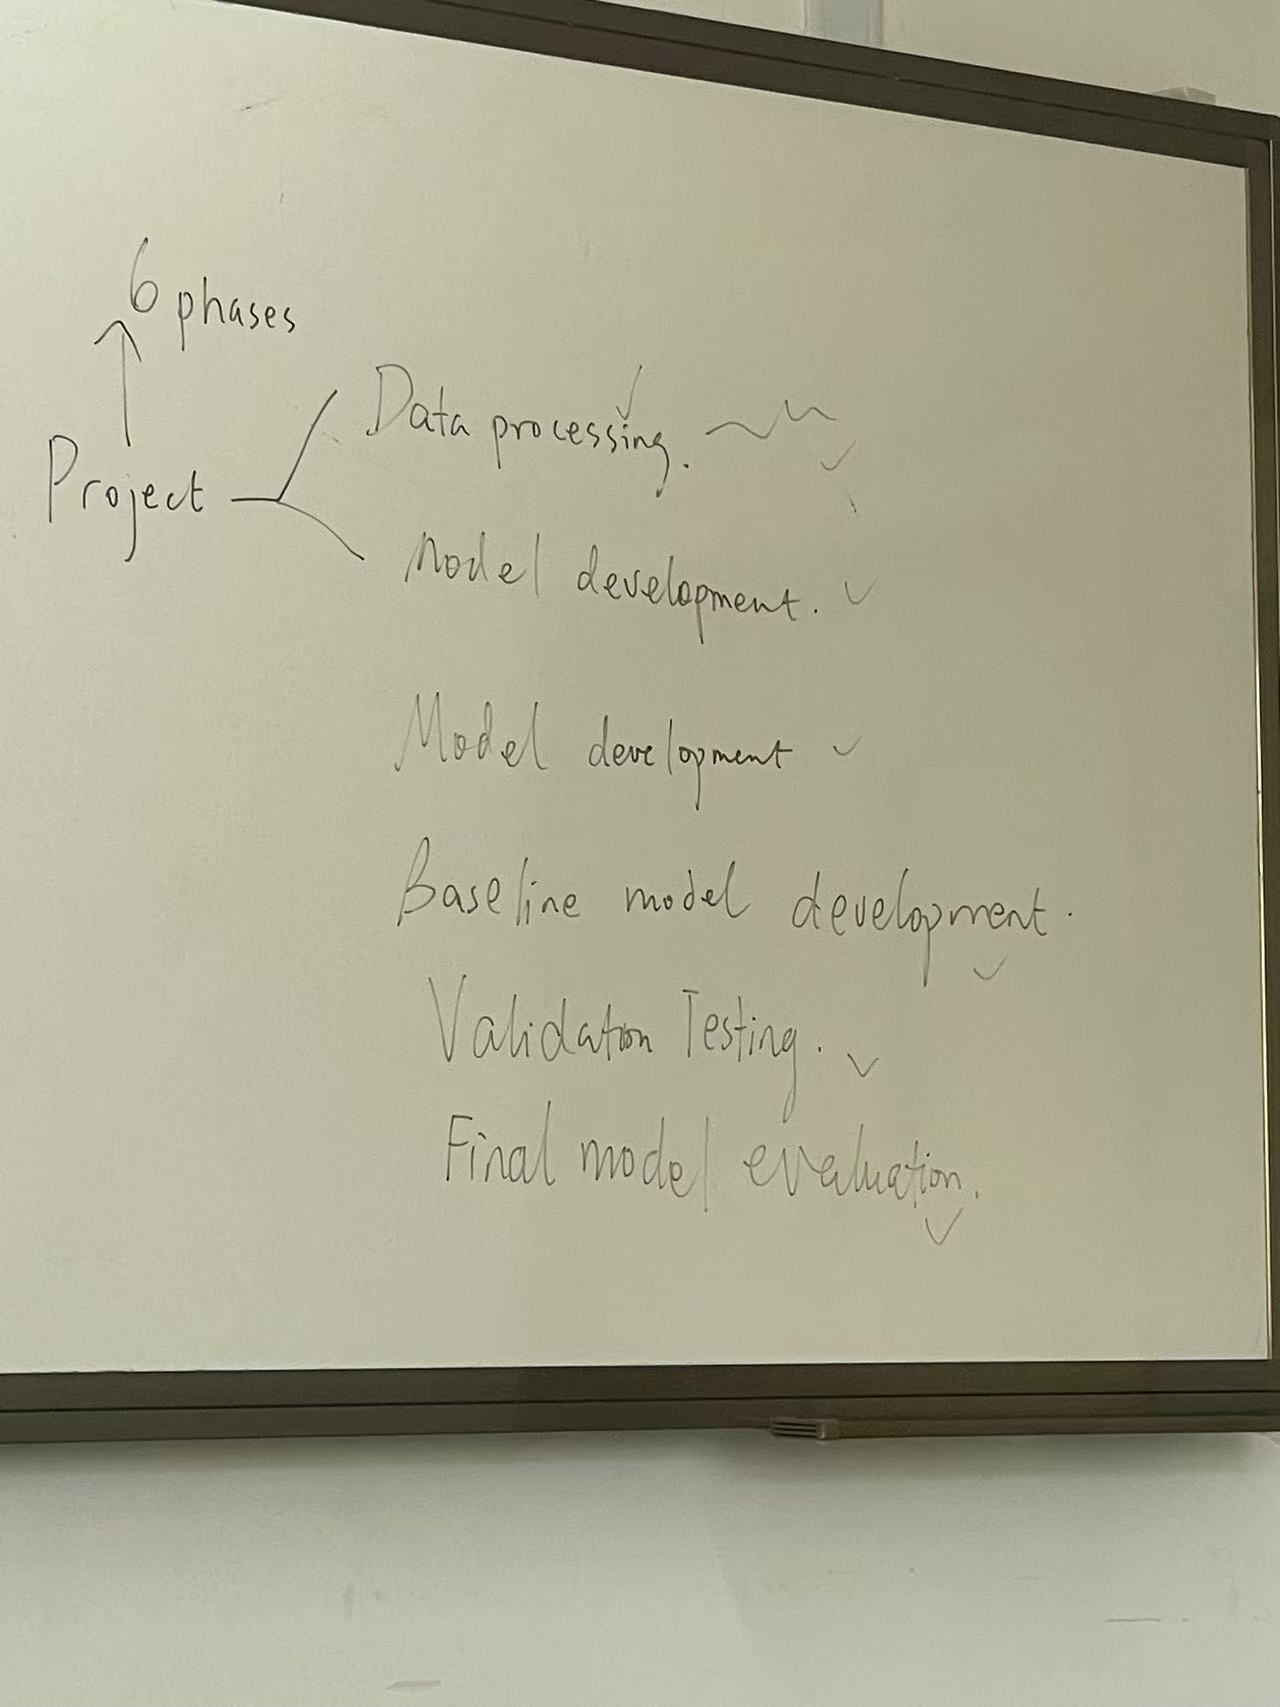 6 phases
Project
Data processing.
Model development.
Model development
Baseline model development.
Validation Testing.
Final model evaluation.